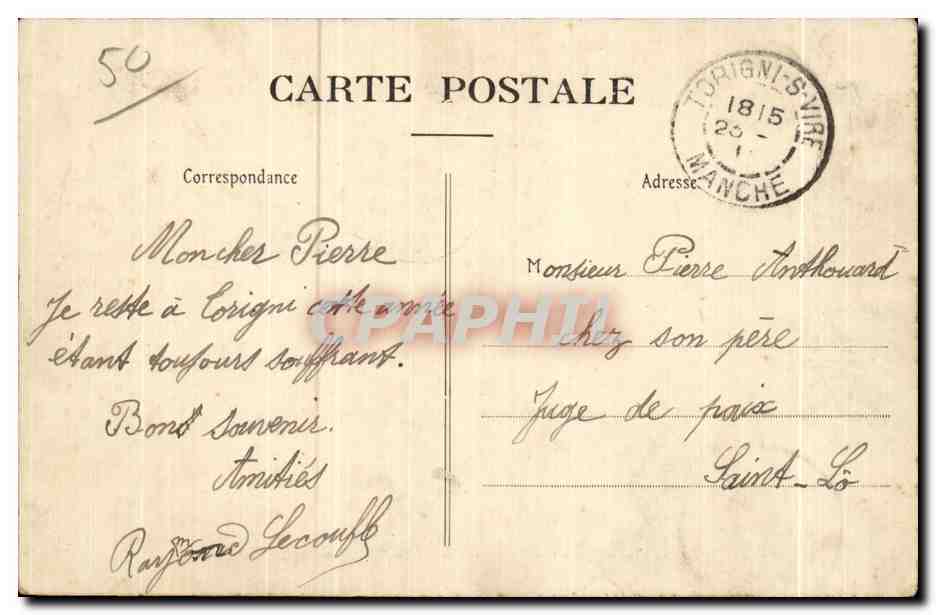 50
CARTE POSTALE
TORIGNI-S-VIRE
1815
MANCHE
Correspondance
Adresse
Mon cher Pierre
Je reste à Torigni cette année
étant toujours souffrant.
Bons souvenir.
Amitiés
Raymond Lecoufle
Monsieur Pierre Anthouard
chez son père
Juge de paix
Saint-Lô
CPAPHIL